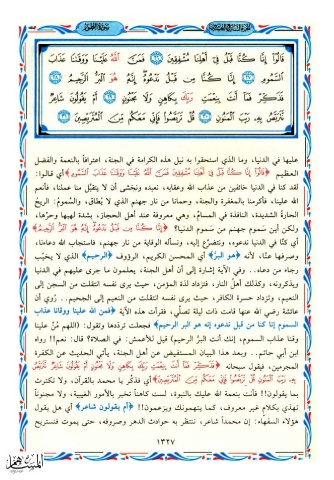 الجزء السابع والعشرون
سورة الطور
قَالُوٓا۟ إِنَّا كُنَّا قَبْلُ فِىٓ أَهْلِنَا مُشْفِقِينَ ﴿٢٦﴾ فَمَنَّ ٱللَّهُ عَلَيْنَا وَوَقَىٰنَا عَذَابَ
ٱلسَّمُومِ ﴿٢٧﴾ إِنَّا كُنَّا مِن قَبْلُ نَدْعُوهُ إِنَّهُۥ هُوَ ٱلْبَرُّ ٱلرَّحِيمُ ﴿٢٨﴾
فَذَكِّرْ فَمَآ أَنتَ بِنِعْمَتِ رَبِّكَ بِكَاهِنٍ وَلَا مَجْنُونٍ ﴿٢٩﴾ أَمْ يَقُولُونَ شَاعِرٌ
نَّتَرَبَّصُ بِهِۦ رَيْبَ ٱلْمَنُونِ ﴿٣٠﴾ قُلْ تَرَبَّصُوا۟ فَإِنِّى مَعَكُم مِّنَ ٱلْمُتَرَبِّصِينَ ﴿٣١﴾
عليها في الدنيا، وما الذي استحقوا به نيل هذه الكرامة في الجنة، اعترافاً بالنعمة والفضل
العظيم ﴿قَالُوٓا۟ إِنَّا كُنَّا قَبْلُ فِىٓ أَهْلِنَا مُشْفِقِينَ فَمَنَّ ٱللَّهُ عَلَيْنَا وَوَقَىٰنَا عَذَابَ ٱلسَّمُومِ﴾ أي قالوا:
لقد كنا في الدنيا خائفين من عذاب الله وعقابه، نعبده ونخشى أن لا يتقبَّل منا عملنا، فأنعم
الله علينا، فأكرمنا بالمغفرة والجنة، وحمانا من نار جهنم الذي لا يُطاق، والسَّمومُ: الريحُ
الحارةُ الشديدة، النافذة في المسامِّ، وهي معروفة عند أهل الحجاز، بشدة لهبها وحرِّها،
ولكن أين سموم جهنم من سموم الدنيا؟ ﴿إِنَّا كُنَّا مِن قَبْلُ نَدْعُوهُ إِنَّهُۥ هُوَ ٱلْبَرُّ ٱلرَّحِيمُ﴾
أي كنَّا في الدنيا ندعوه، ونتضرَّع إليه، ونسأله الوقاية من نار جهنم، فاستجاب الله دعاءنا،
وصرفها عنَّا، لأنه ﴿هو البرُّ﴾ أي المحسن الكريم، الرؤوف ﴿الرحيم﴾ الذي لا يخيِّب
رجاء من دعاه.. وفي الآية إشارة إلى أن أهل الجنة، يعلمون ما جرى عليهم في الدنيا
ويذكرونه، وكذلك أهل النار، فتزداد لذة المؤمن، حيث يرى نفسه انتقلت من السجن إلى
النعيم، وتزداد حسرة الكافر، حيث يرى نفسه انتقلت من النعيم إلى الجحيم.. رُوي أن
عائشة رضي الله عنها قامت ذات ليلة تصلِّي، فقرأت هذه الآية ﴿فمن الله علينا ووقانا عذاب
السموم إنا كنا من قبل ندعوه إنه هو البر الرحيم﴾ فجعلت تردِّدها وتقول: (اللهم مُنَّ علينا
وقنا عذاب السموم، إنك أنت البرُّ الرحيم) قيل للأعمش: في الصلاة؟ قال: نعم!! رواه
ابن أبي حاتم.. وبعد هذا البيان المستفيض عن أهل الجنة، يأتي الحديث عن الكفرة
المجرمين، فيقول سبحانه ﴿فَذَكِّرْ فَمَآ أَنتَ بِنِعْمَتِ رَبِّكَ بِكَاهِنٍ وَلَا مَجْنُونٍ أَمْ يَقُولُونَ شَاعِرٌ نَّتَرَبَّصُ
بِهِۦ رَيْبَ ٱلْمَنُونِ قُلْ تَرَبَّصُوا۟ فَإِنِّى مَعَكُم مِّنَ ٱلْمُتَرَبِّصِينَ﴾ أي فذكِّر يا محمد بالقرآن، ولا تكترث
بما يقولون!! فأنت بنعمة الله عليك بالنبوة، لست كاهناً تخبر بالأمور الغيبية، ولا مجنوناً
تهذي بكلام غير معروف، كما يتهمونك ويزعمون!! ﴿أم يقولون شاعر﴾ أي هل يقول
هؤلاء السفهاء: إن محمداً شاعر، ننتظر به حوادث الدهر وصروفه، حتى يموت فنستريح
١٣٢٧